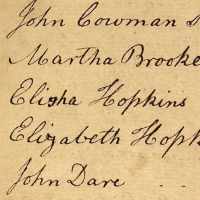 John Cowman
Martha Brooke
Elisha Hopkins
Elizabeth Hopk
John Dare . .